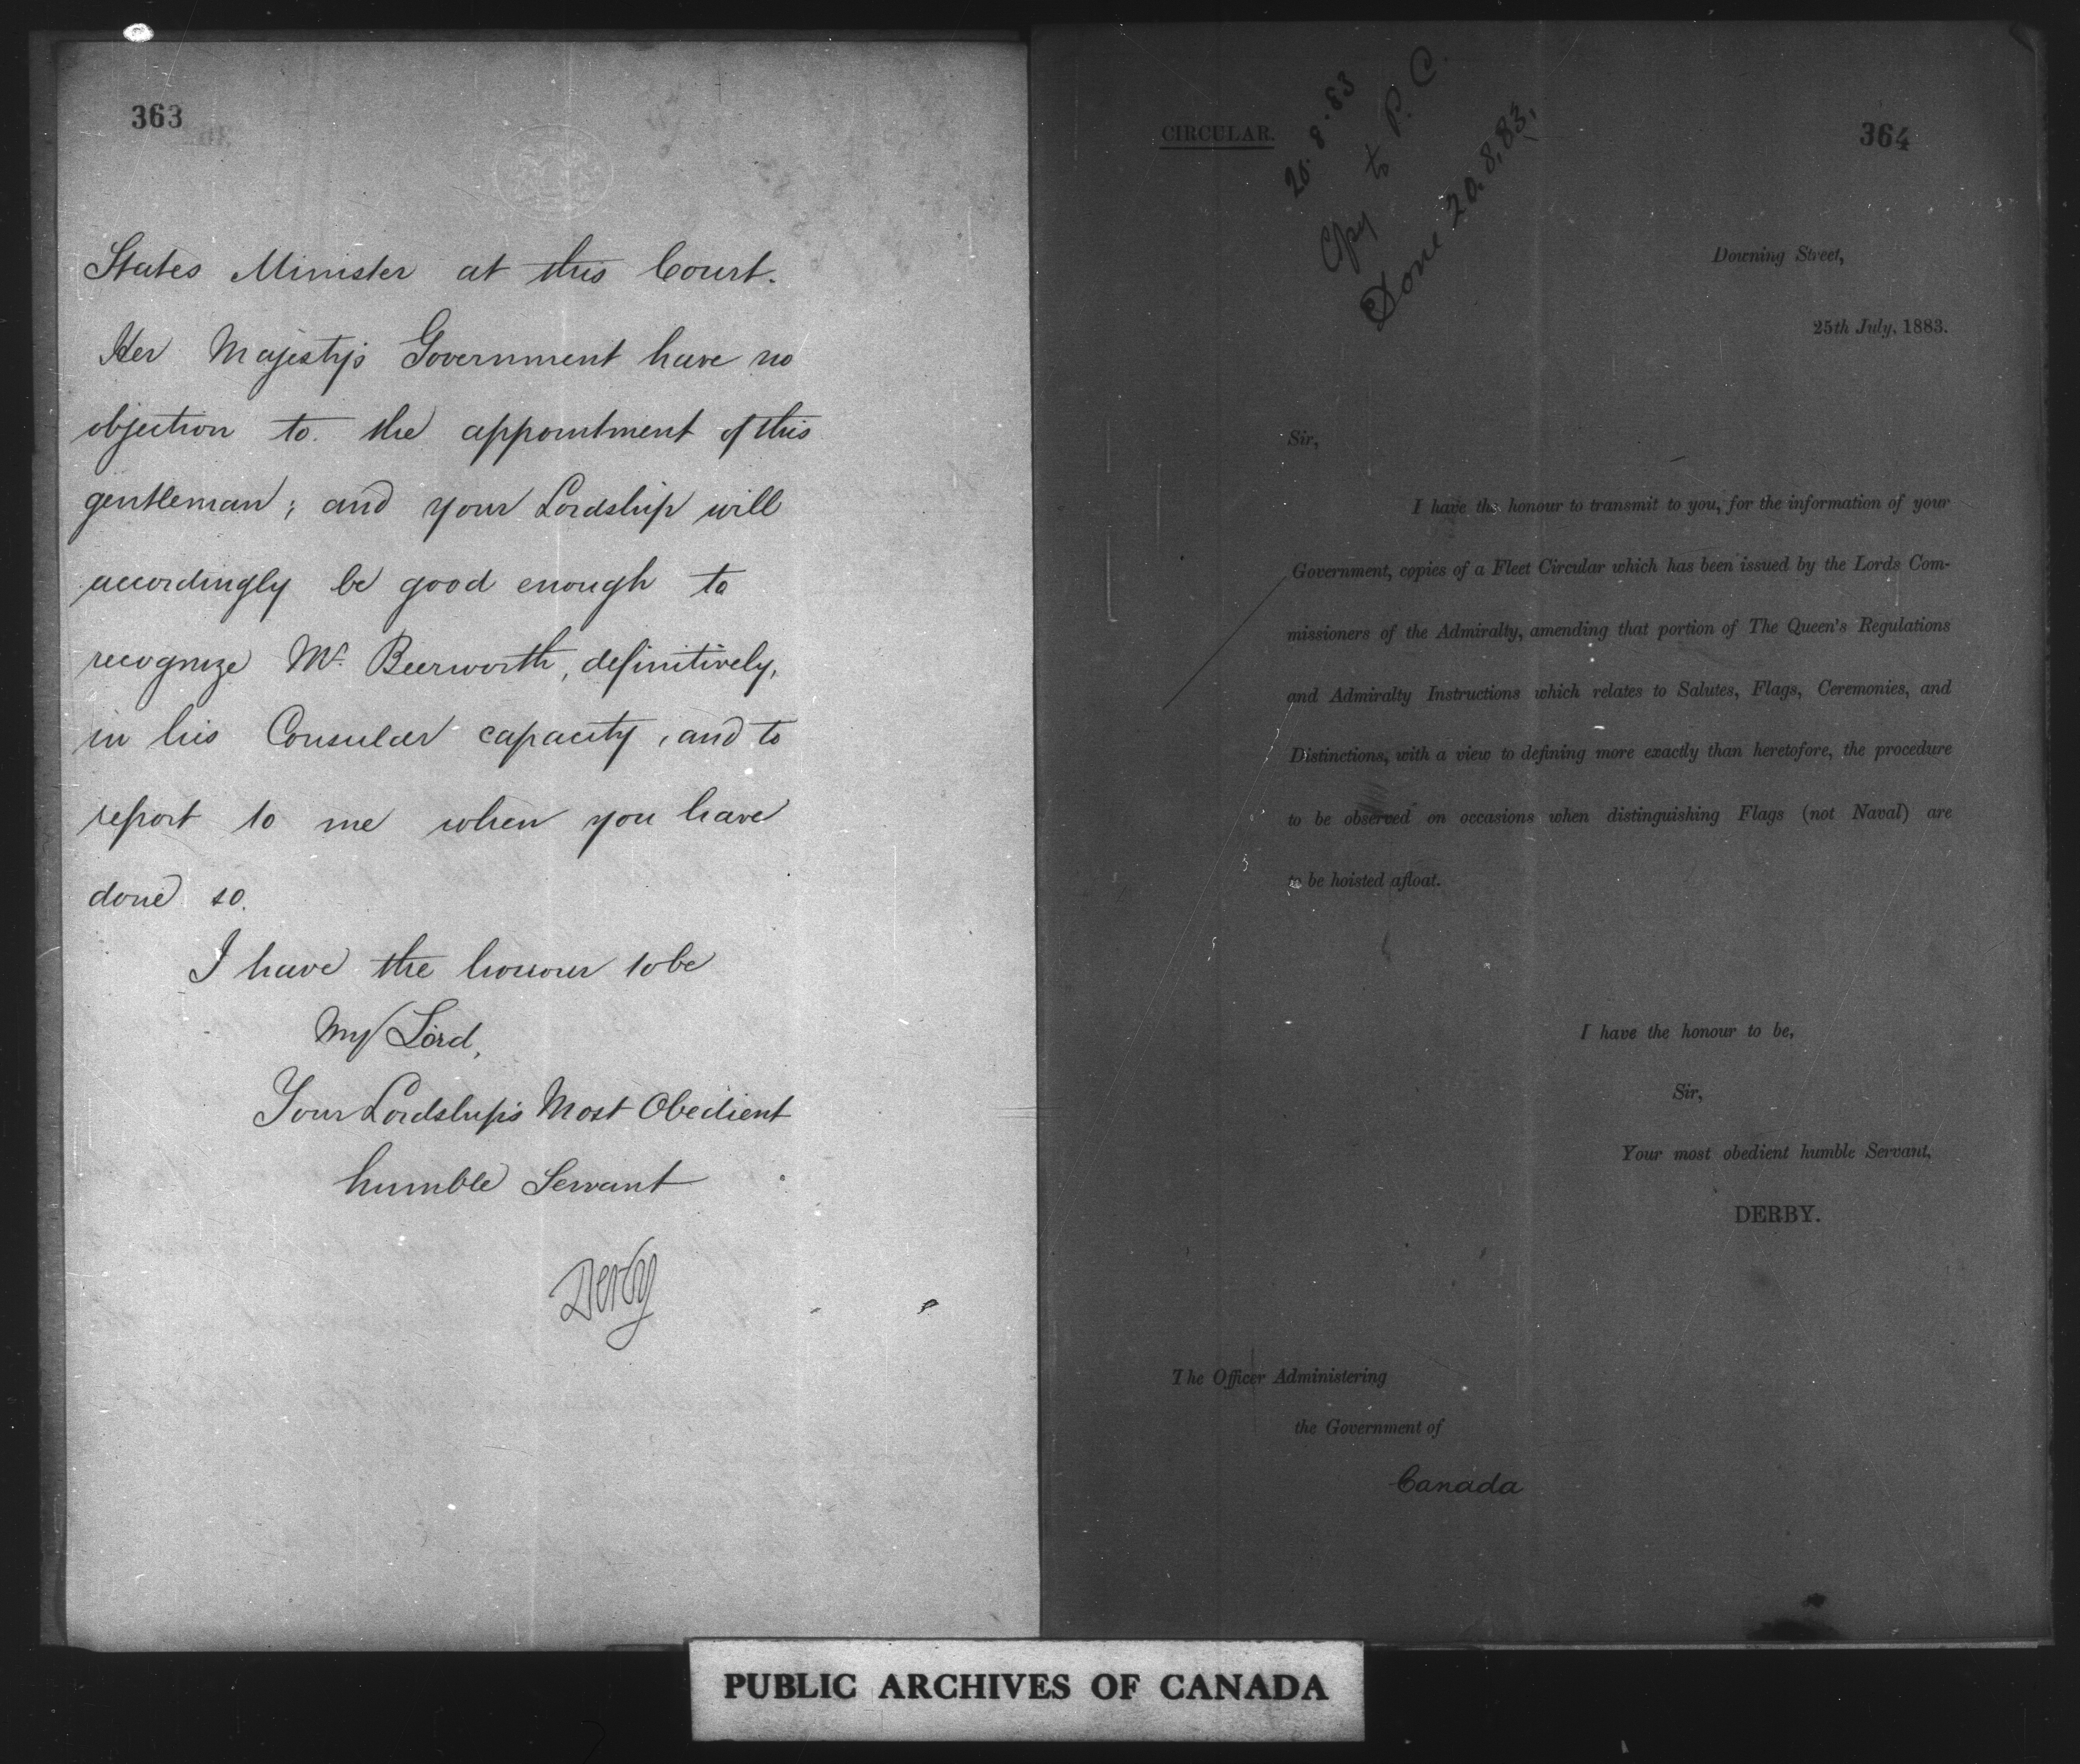 363
States Minister at this Court.
Her Majesty's Government have no
objection to the appointment of this
gentleman; and your Lordship will
accordingly be good enough to
recognize Mr. Beerworth, definitively,
in his Consular capacity, and to
report to me when you have
done so.
I have the honour to be
My Lord,
Your Lordship's Most Obedient
humble Servant
Derby
CIRCULAR.
20.8.83
Copy to P. C.
Done 20.8.83.
364
Downing Street,
25th July, 1883.
Sir,
I have the honour to transmit to you, for the information of your
Government, copies of a Fleet Circular which has been issued by the Lords Com-
missioners of the Admiralty, amending that portion of The Queen's Regulations
and Admiralty Instructions which relates to Salutes, Flags, Ceremonies, and
Distinctions, with a view to defining more exactly than heretofore, the procedure
to be observed on occasions when distinguishing Flags (not Naval) are
to be hoisted afloat.
I have the honour to be,
Sir,
Your most obedient humble Servant,
DERBY.
The Officer Administering
the Government of
Canada
PUBLIC ARCHIVES OF CANADA